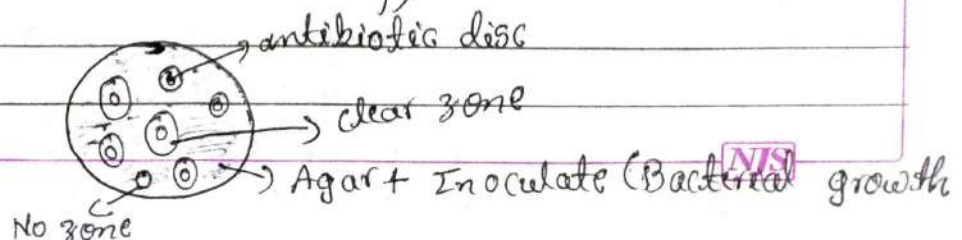 antibiotic disc
clear zone
Agar + Inoculate (Bacterial growth
NJS
No zone